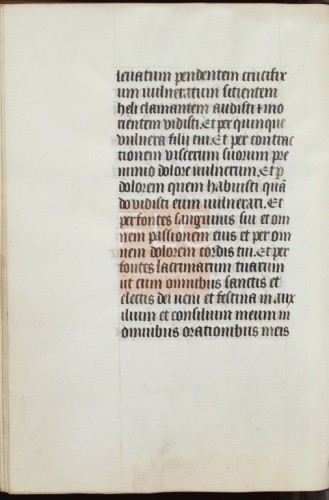 leuatum pendentem crucifix
um uulneratum sitientem
heli clamantem audisti ⁊ mo
rientem vidisti. Et per quinque
vulnera filij tui. Et per contrac
tionem viscerum suorum pre
nimio dolore uulnerum. Et ꝑ
dolorem quem habuisti quā
do vidisti eum uulnerari. Et
per fontes sanguinis sui et om
nem passionem eius et per om
nem dolorem cordis tui. Et per
fontes lacrimarum tuarum
ut cum omnibus sanctis et
electis dei ueni et festina in aux
ilium et consilium meum in
omnibus orationibus meis